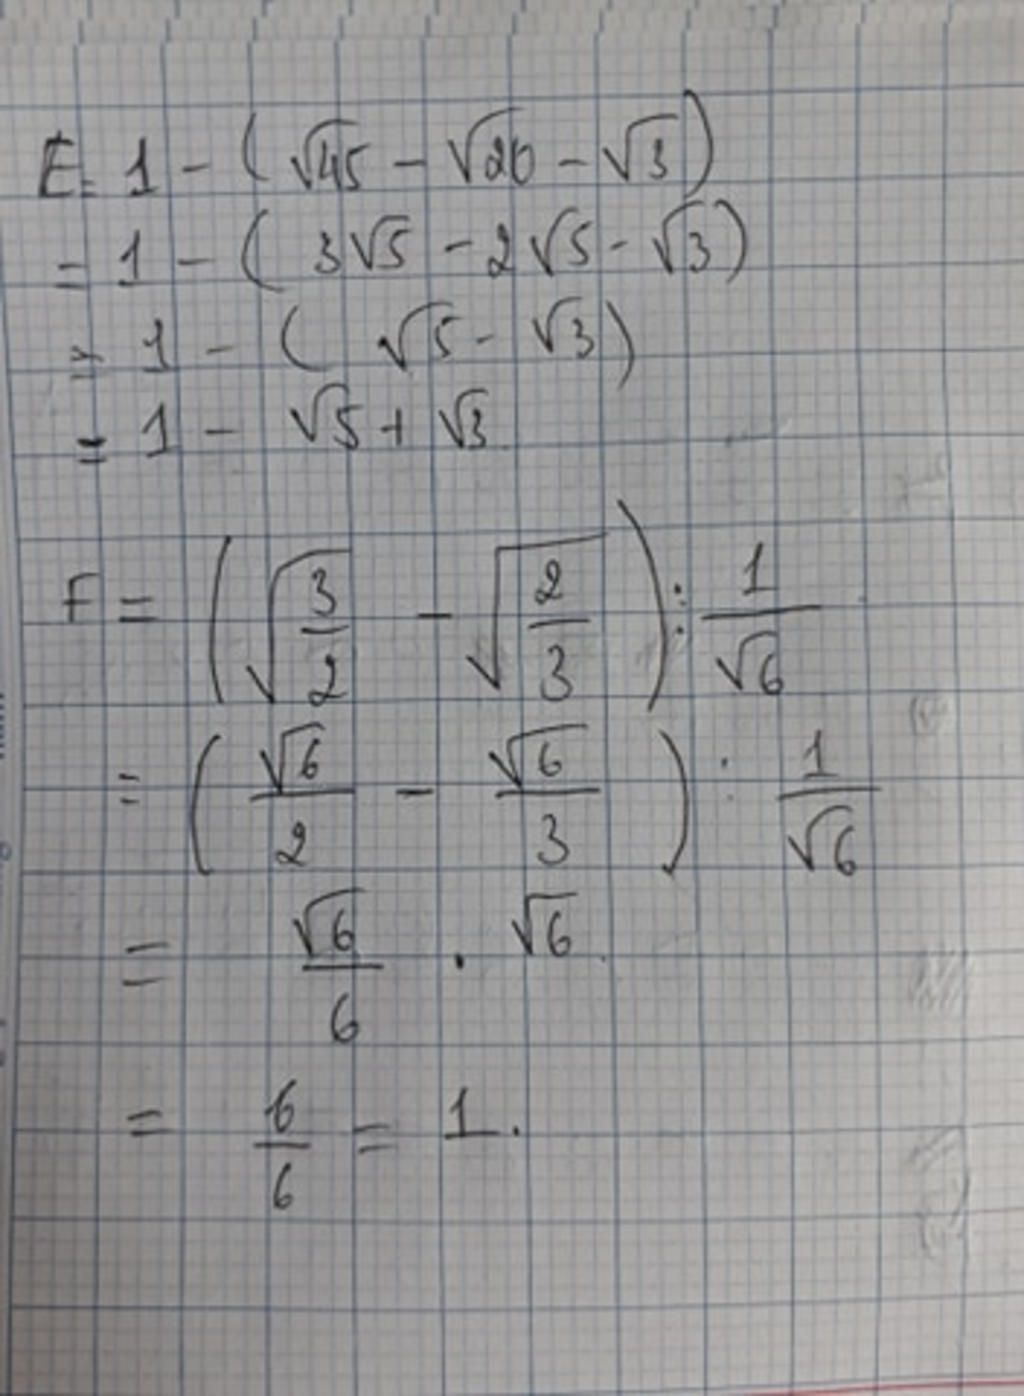 E = 1 - (√45 - √20 - √3)
= 1 - (3√5 - 2√5 - √3)
= 1 - (√5 - √3)
= 1 - √5 + √3
F = (√(3/2) - √(2/3)) : 1/√6
= (√6/2 - √6/3) : 1/√6
= √6/6 . √6
= 6/6 = 1.